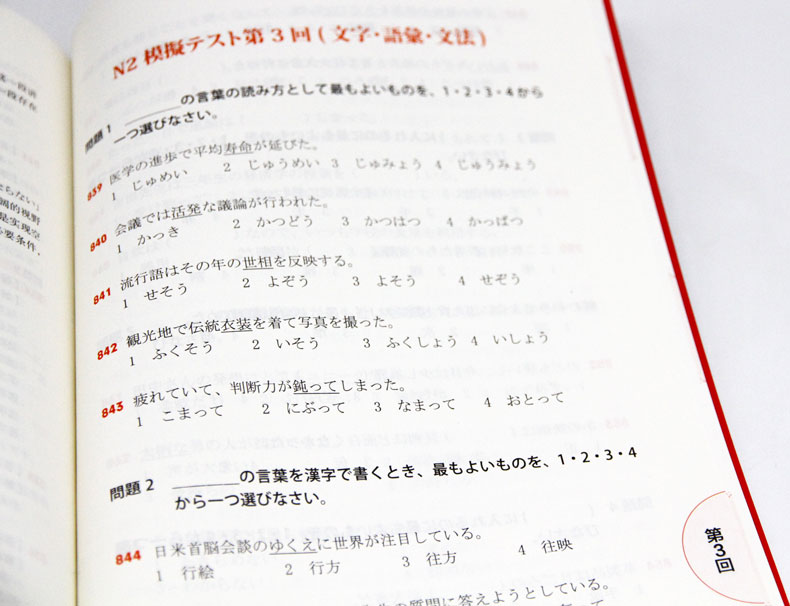 N2 模擬テスト第3回(文字・語彙・文法)
問題1 ______の言葉の読み方として最もよいものを、1・2・3・4から
一つ選びなさい。
839 医学の進歩で平均寿命が延びた。
1 じゅめい 2 じゅうめい 3 じゅみょう 4 じゅうみょう
840 会議では活発な議論が行われた。
1 かっき 2 かつどう 3 かつはつ 4 かっぱつ
841 流行語はその年の世相を反映する。
1 せそう 2 よぞう 3 よそう 4 せぞう
842 観光地で伝統衣装を着て写真を撮った。
1 ふくそう 2 いそう 3 ふくしょう 4 いしょう
843 疲れていて、判断力が鈍ってしまった。
1 こまって 2 にぶって 3 なまって 4 おとって
問題2 ______の言葉を漢字で書くとき、最もよいものを、1・2・3・4
から一つ選びなさい。
844 日米首脳会談のゆくえに世界が注目している。
1 行絵 2 行方 3 往方 4 往映
の質問に答えようとしている。
第3回
らない」
弱的視野
是实现空
必要条件,
一段存在